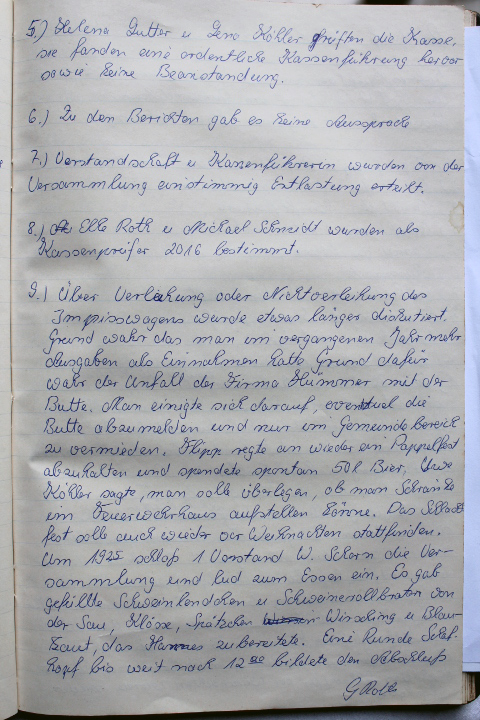 5.) Helena Dutter u Gera Köller prüften die Kasse,
sie fanden eine ordentliche Kassenführung hervor
sowie keine Beanstandung.
6.) Zu den Berichten gab es keine Aussprache
7.) Vorstandschaft u Kassenführerin wurden von der
Versammlung einstimmig Entlastung erteilt.
8.) Elle Roth u Michael Schmidt wurden als
Kassenprüfer 2016 bestimmt.
9.) Über Verleihung oder Nichtverleihung des
Imbisswagens wurde etwas länger diskutiert.
Grund wahr das man im vergangenen Jahr mehr
Ausgaben als Einnahmen hatte Grund dafür
wahr der Unfall der Firma Hümmer mit der
Butte. Man einigte sich darauf, eventuel die
Butte abzumelden und nur im Gemeindebereich
zu vermieden. Hipp regte an wieder ein Pappelfest
abzuhalten und spendete spontan 50l Bier. Uwe
Köller sagte, man solle überlegen, ob man Schränke
im Feuerwehrhaus aufstellen könne. Das Schlacht
fest solle auch wieder vor Weihnachten stattfinden.
Um 19 25 schloß 1 Vorstand W. Schorn die Ver-
sammlung und lud zum Essen ein. Es gab
gefüllte Schweinlendchen u Schweinerollbraten von
der Sau, Klöse, Spätzchen Wirsching u Blau-
kraut, das Hannes zubereitete. Eine Runde Schaf-
kopf bis weit nach 12 00 bildete den Abschluß
G Roth